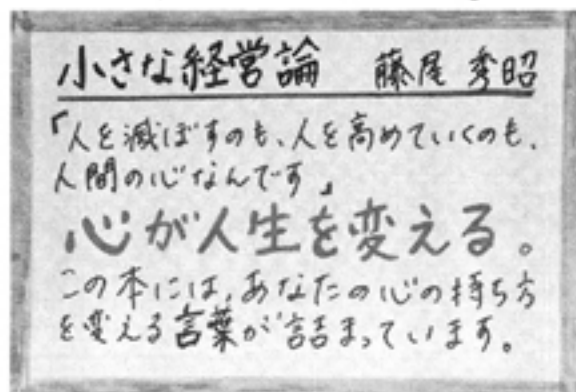 小さな経営論 藤尾 秀昭
「人を滅ぼすのも、人を高めていくのも、
人間の心なんです」
心が人生を変える。
この本には、あなたの心の持ち方
を変える言葉が詰まっています。